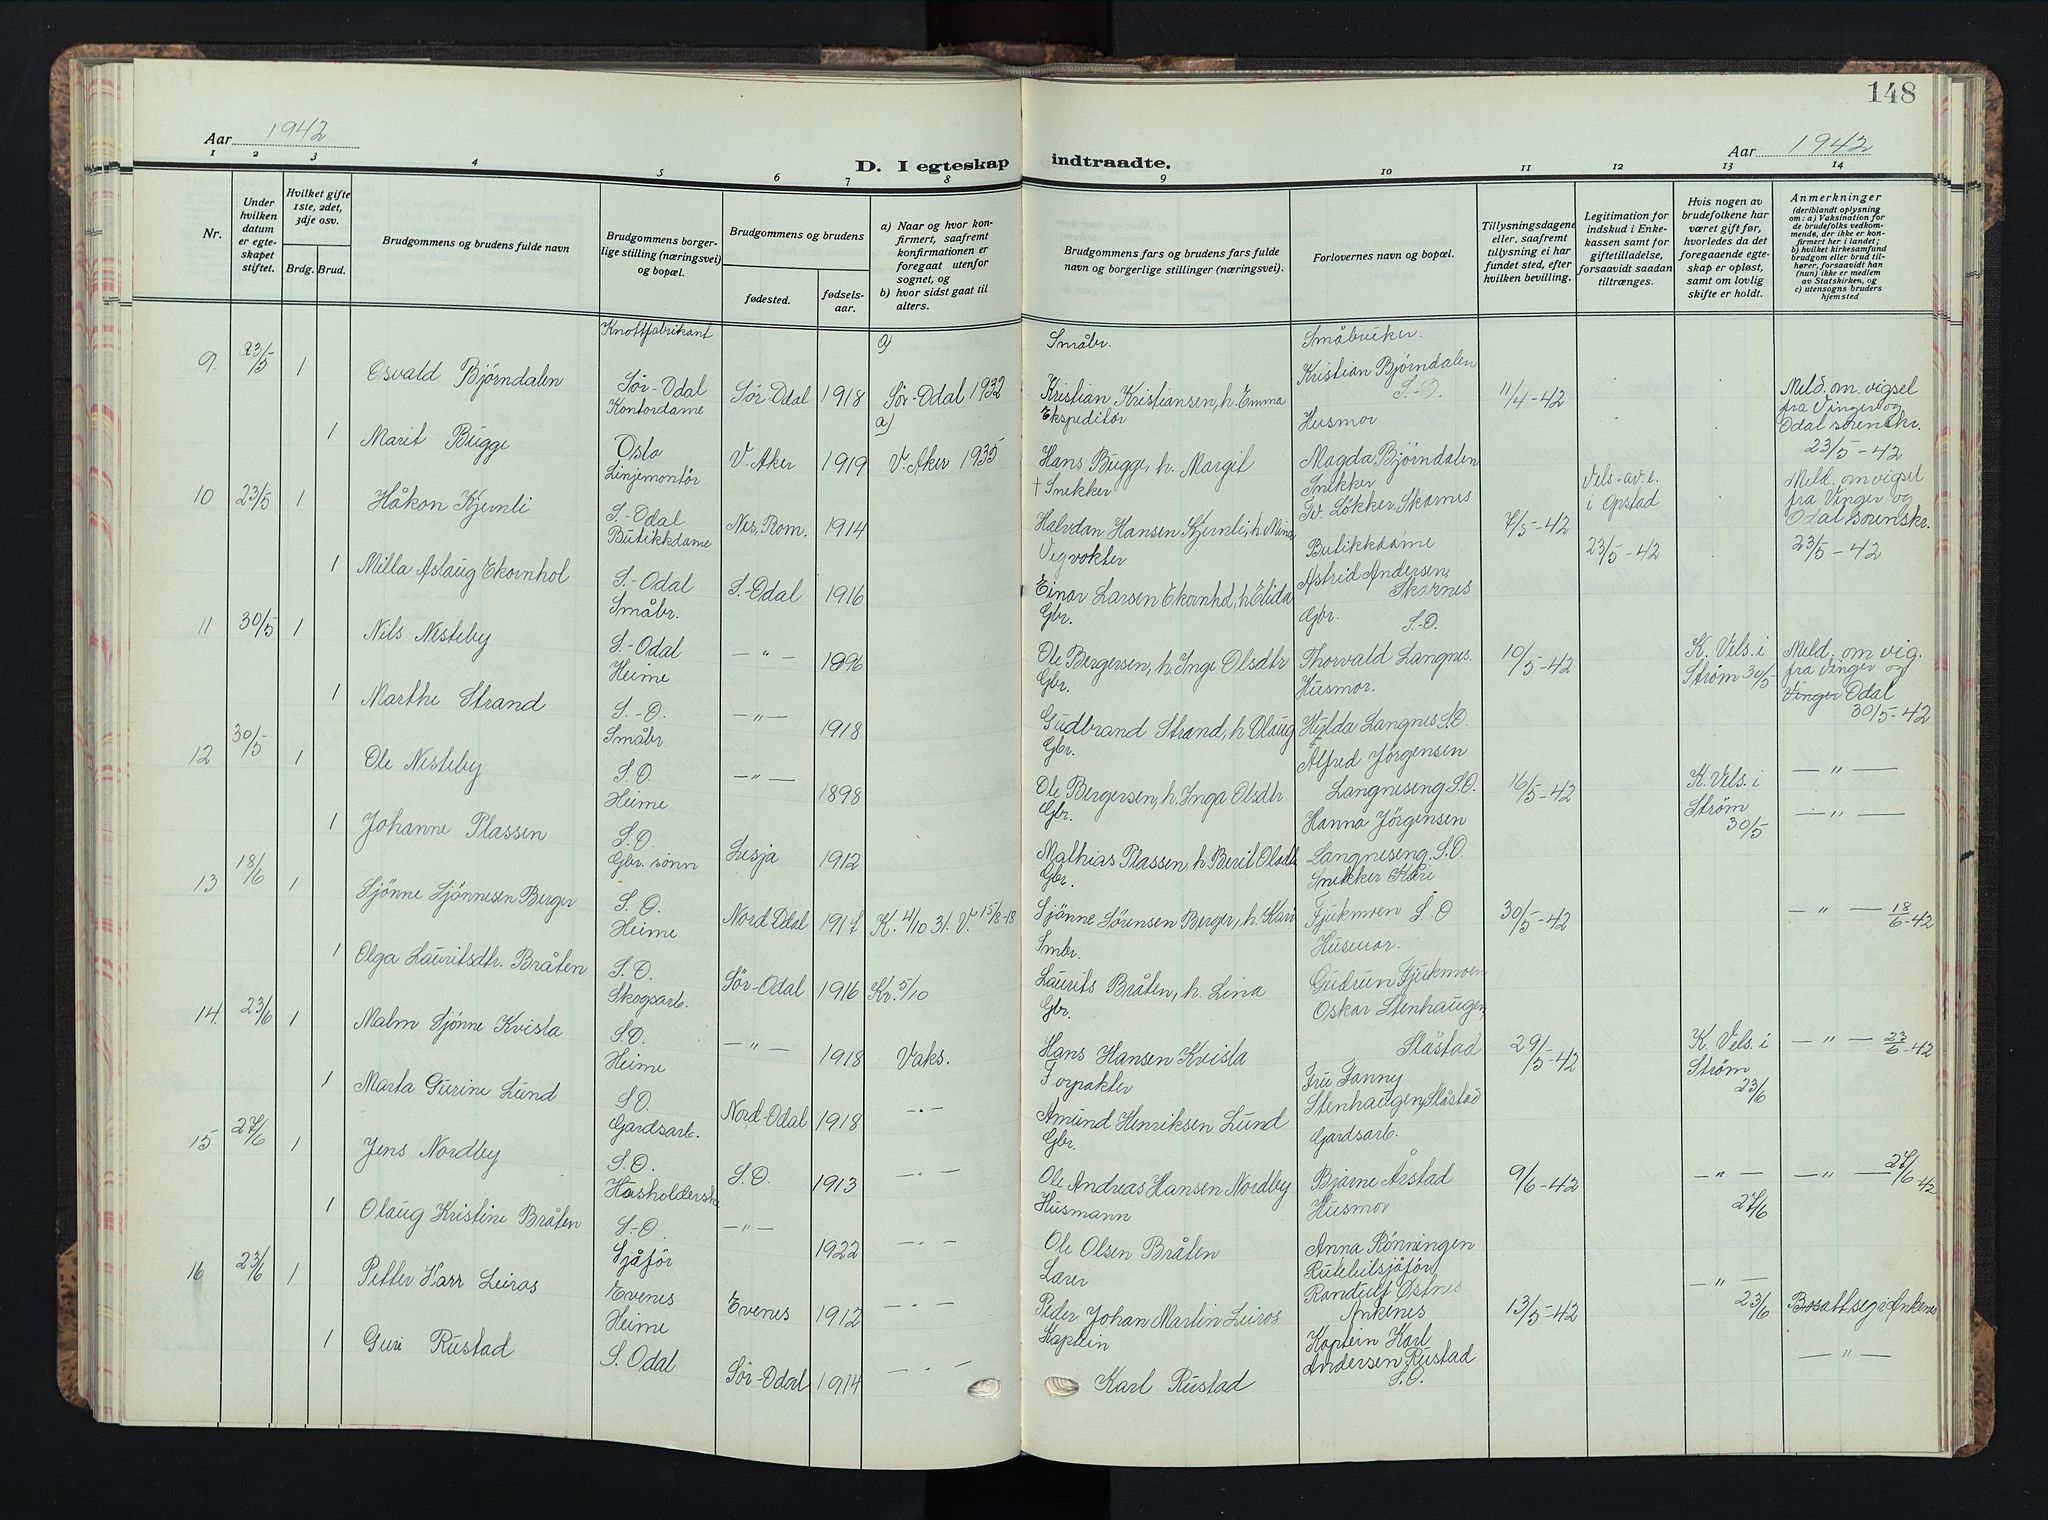 148
Aar 1942
D. I egteskap indtraadte.
Aar 1942
1 2 3 4 5 6 7 8 9 10 11 12 13 14
Nr.
Under hvilken datum er egteskapet stiftet.
Hvilket gifte 1ste, 2det, 3dje osv.
Brdg. Brud.
Brudgommens og brudens fulde navn
Brudgommens borgerlige stilling (næringsvei) og bopæl.
Brudgommens og brudens
fødested.
fødselsaar.
a) Naar og hvor konfirmert, saafremt konfirmationen er foregaat utenfor sognet, og
b) hvor sidst gaat til alters.
Brudgommens fars og brudens fars fulde navn og borgerlige stillinger (næringsvei).
Forlovernes navn og bopæl.
Tillysningsdagene eller, saafremt tillysning ei har fundet sted, efter hvilken bevilling.
Legitimation for indskud i Enkekassen samt for giftetilladelse, forsaavidt saadan tiltrænges.
Hvis nogen av brudefolkene har været gift før, hvorledes da det foregaaende egteskap er opløst, samt om lovlig skifte er holdt.
Anmerkninger
(deriblandt oplysning om: a) Vaksination for de brudefolks vedkommende, der ikke er konfirmert her i landet; b) hvilket kirkesamfund brudgom eller brud tilhører, forsaavidt han (hun) ikke er medlem av Statskirken, og c) utensogns bruders hjemsted
9. 23/5 1 Osvald Bjørndalen Knottfabrikant Sør-Odal Sør-Odal 1918 a) Sør-Odal 1932 Småbr. Kristian Kristiansen, h. Emma Småbruker. Kristian Bjørndalen S.-O. 11/4-42 Meld. om vigsel fra Vinger og Odal sorenskr. 23/5-42
1 Marit Bugge Kontordame Oslo V. Aker 1919 a) V. Aker 1935 Ekspeditør Hans Bugge, h. Margit Husmor Magda Bjørndalen
10 23/5 1 Håkon Kjernli Linjemontør S.-Odal Nes, Rom. 1914 † Snekker Halvdan Hansen Kjernli, h. Mina Snekker Tv. Løkker, Skarnes 7/5-42 Vels. av. e. i Opstad 23/5-42 Meld. om vigsel fra Vinger og Odal sorenskr. 23/5-42
1 Milla Aslaug Ekornhol Butikkdame S.-Odal S.-Odal 1916 Vegvokter Einar Larsen Ekornhol, h. Elida Butikkdame Astrid Andersen, Skarnes
11 30/5 1 Nils Nesteby Småbr. S.-Odal — " — 1896 Gbr. Ole Bergersen, h. Inge Olsdtr Gbr. S.-O. Thorvald Langnes. 10/5-42 K. Vels. i Strøm 30/5 Meld. om vig. fra Vinger og Vinger Odal 30/5-42
1 Marthe Strand Heime S.-O. — " — 1918 Gbr. Gudbrand Strand, h. Olaug Husmor. Hylda Langnes S.O.
12 30/5 1 Ole Nesteby Småbr. S.O. — " — 1898 Gbr. Ole Bergersen, h. Inga Olsdtr Alfred Jörgensen Langneseng S.O. 16/5-42 K. Vels. i Strøm 30/5 — " —
1 Johanne Plassen Heime S.O. Lesja 1912 Gbr. Mathias Plassen, h. Berit Olsdtr Hanna Jörgensen Langneseng S.O. — " —
13 18/6 1 Sjønne Sjønnesen Berger Gbr. sønn S.O. Nord-Odal 1917 K. 4/10 31. V. 15/8-18 Gbr. Sjønne Sørensen Berger, h. Kari Snekker Kåre Fjukmoen S.O 30/5-42 — " — 18/6-42
1 Olga Lauritsdtr. Bråten Heime S.O. Sør-Odal 1916 Kr. 5/10 Smbr. Laurits Bråten, h. Lina Husmor. Gudrun Fjukmoen
14. 23/6 1 Malm Sjønne Kvisla Skogsarb. S.O. — " — 1918 Vaks. Gbr. Hans Hansen Kvisla Oskar Stenhaugen, Slåstad 29/5-42 K. Vels. i Strøm 23/6 — " — 23/6-42
1 Marta Gurine Lund Heime S.O. Nord-Odal 1918 — " — Forpakter Amund Henriksen Lund Fru Fanny Stenhaugen, Slåstad
15 27/6 1 Jens Nordby Gardsarb. S.O. S.O. 1913 — " — Gbr. Ole Andreas Hansen Nordby Gardsarb. Bjarne Årstad 9/6-42 — " — 27/6 — " — 27/6 42
1 Olaug Kristine Bråten S.-O. — " — 1922 — " — Husmann Ole Olsen Bråten Husmor Anna Rønningen
16 23/6 1 Petter Harr Leiros Sjåför Evenes Evenes 1912 — " — Lærer Peder Johan Martin Leiros Rutebilsjåför Randulf Østnes Ankenes 13/5-42 — " — 23/6 Bosatt seg i Ankenes
1 Guri Rustad Heime S. Odal Sør-Odal 1914 — " — Kaptein Karl Rustad Kaptein Karl Andersen Rustad S.O. — " —